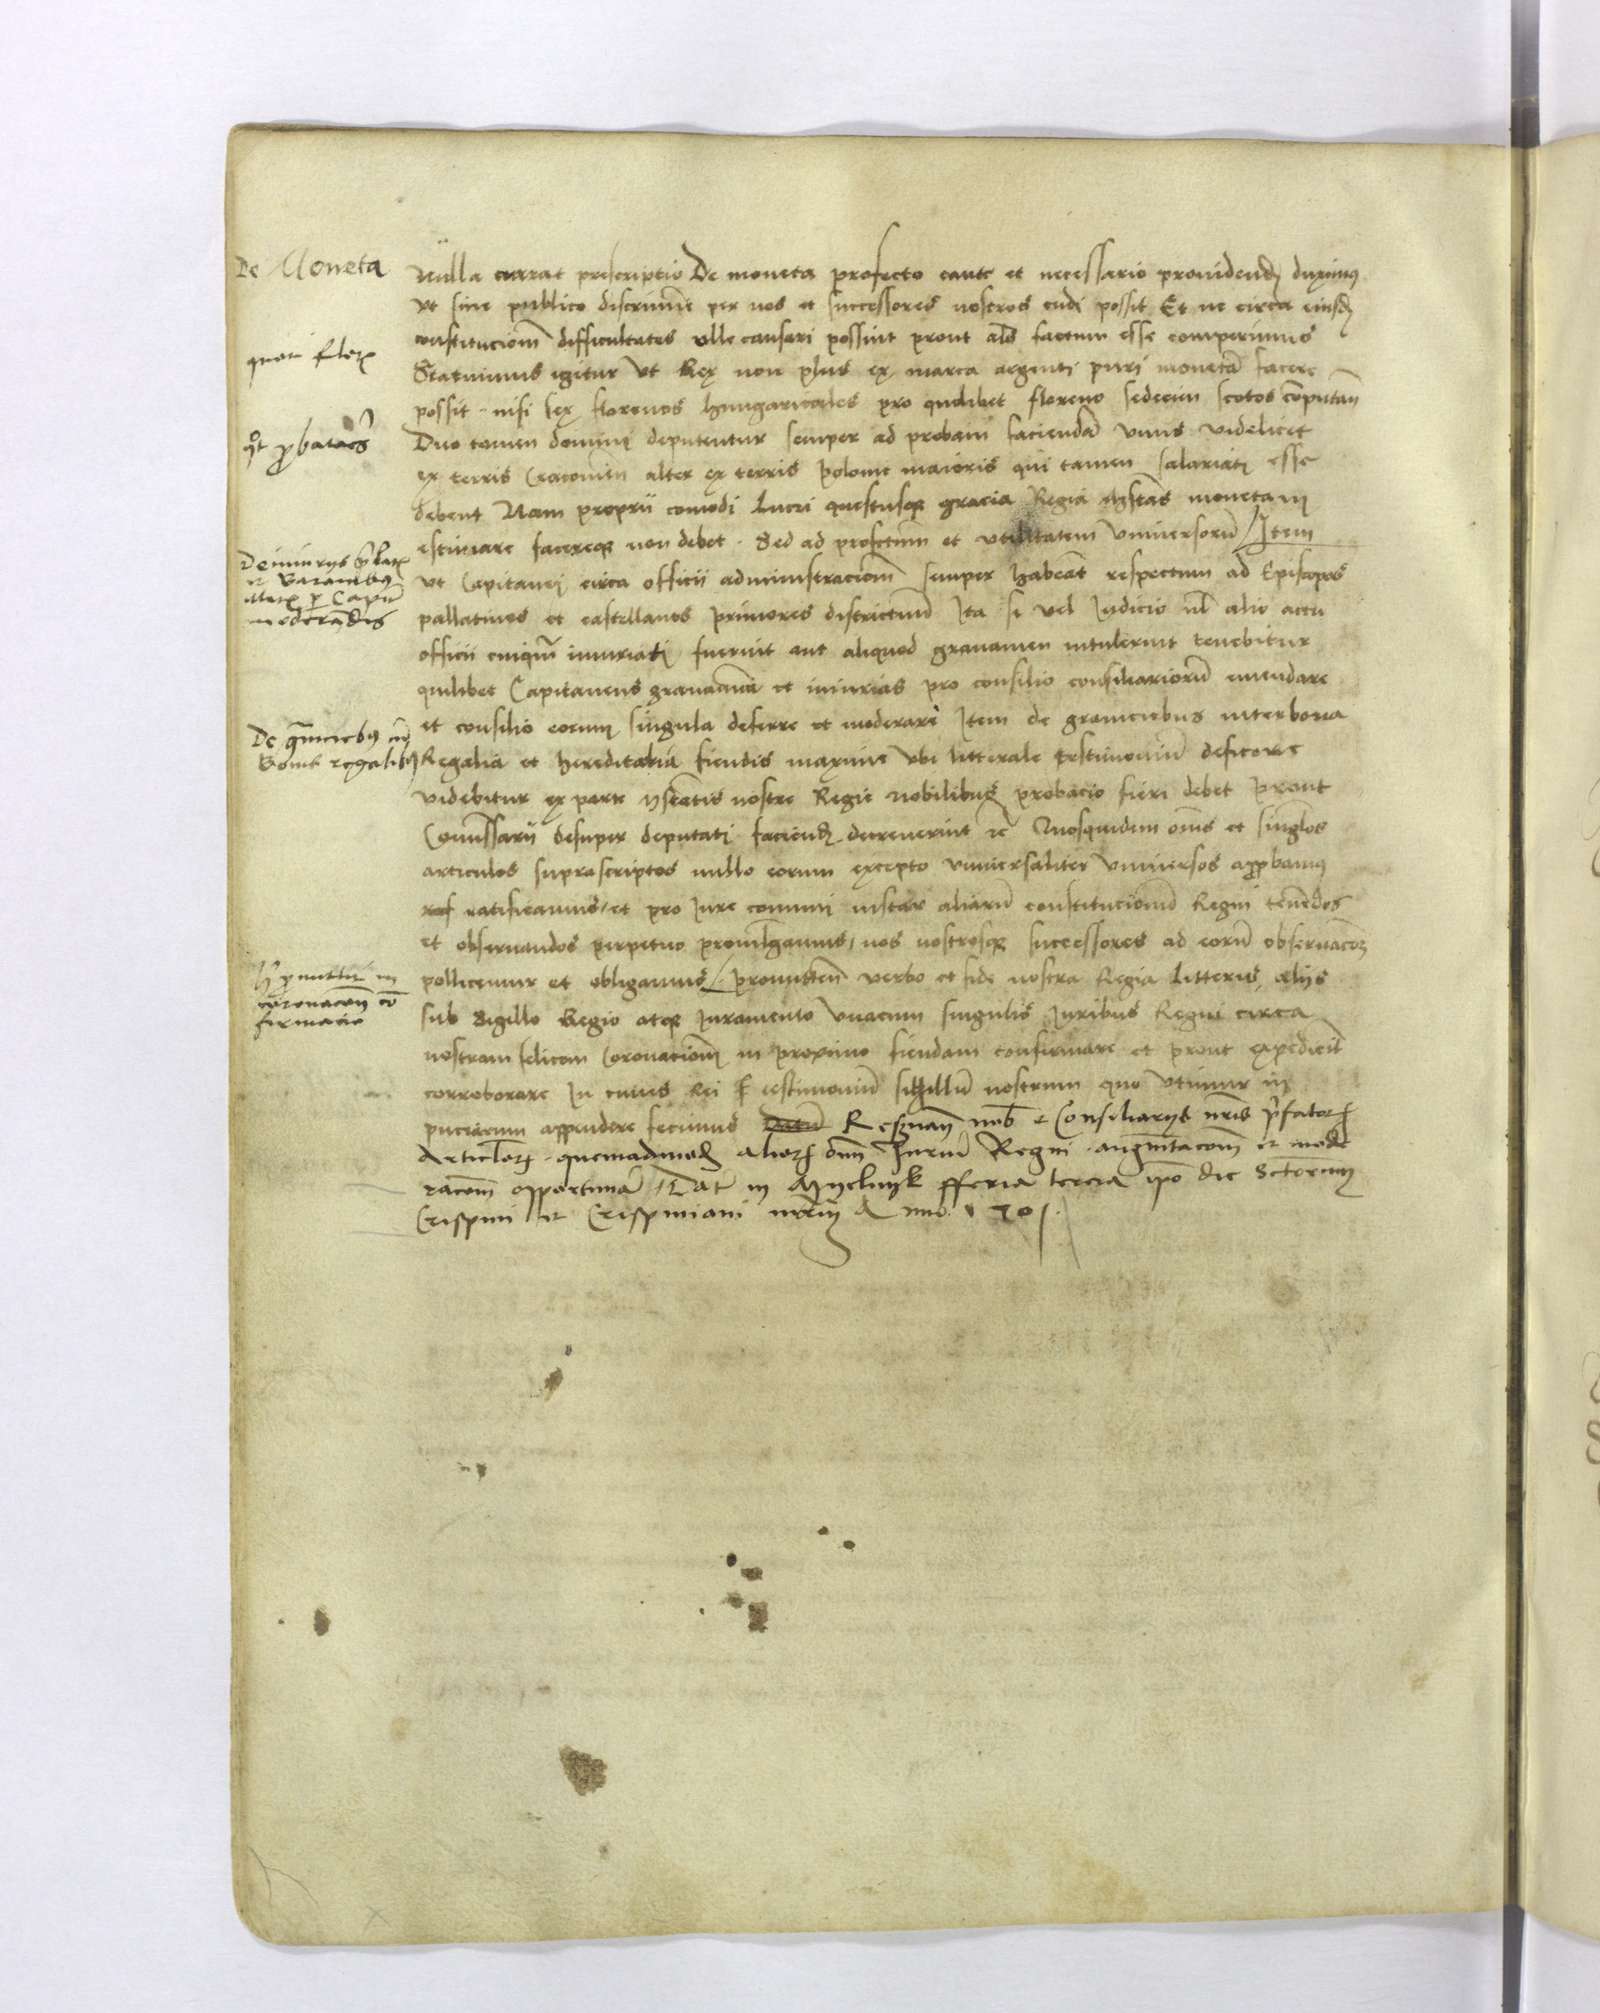 De Moneta
Nulla currat prescriptio De moneta profecto caute et necessario prouidend duximus
Vt sine publico discrimine per nos et successores nostros cudi possit Et ne circa eiusd
constitucionem difficultates vlle causari possint prout als factum esse comperimus
quot flor
Statuimus igitur vt Rex non plus ex marca argenti puri monetā facere
possit nisi sex florenos hungaricales pro quolibet floreno sedecim scotos cōputan
Duo tamen domini deputentur semper ad probam faciendā vnus videlicet
ex terris Cracouien alter ex terris polonie maioris qui tamen salariati esse
debent Nam proprii comodi lucri questusq gracia Regia Mstas monetam
estimare facereq non debet Sed ad profectum et vtilitatem vniuersorū / Item
De iniuriis
moderādis
vt Capitanei circa officii administracionem semper habeāt respectum ad Episcopos
pallatinos et castellanos primores districtuum Ita si vel iudicio vel alio actu
officii cuiqm iniuriati fuerint aut aliquod grauamen intulerint tenebitur
quilibet Capitaneus grauamina et iniurias pro consilio consiliariorū emendare
et consilio eorum singula deferre et moderare Item de graniciebus inter bona
De graniciebus cū
Bonis regalib
Regalia et hereditaria fiendis maxime vbi litterale testimoniū deficere
videbitur ex parte Mstatis nostre Regie nobilibus probacio fieri debet prout
Comissarii desuper deputati faciend decreuerint etc Quosquidem oms et singlos
articulos suprascriptos nullo eorum excepto vniuersaliter vniuersos approbamus
ratificamus / et pro iure comuni instar aliarū constitucionū Regni tenēdos
et obseruandos perpetuo promlgamus / nos nostrosq successores ad eorū obseruacōem
pollicemur et obligamus / promitten verbo et fide nostra Regia litteris aliis
promittitur in
coronacōem cō
firmacio
sub Sigillo Regio atq Iuramento vnacum singulis Iuribus Regni circa
nostram felicem Coronationem in proximo fiendam confirmare et prout expedierit
corroborare In cuius Rei testimoniū sigillū nostrum quo vtimur in
puciarum appendere fecimus Reseruan nob et Consiliariis nris pfator
Articlor quemadmod alior omm Iuriū Regni augmtacom et mode
racom opportunā / Dat in Myelnyk fferia tercia ipo die Sctorum
Crispini et Crispiniani mrm Anno 1501